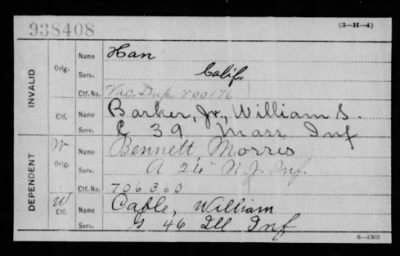 938408
(3-H-4)
INVALID
Orig. Name Han
Serv. Calif.
Ctf. No. Vac. Dup. 800176
Ctf. Name Barker, Jr., William S.
Serv. E 39 Mass Inf
DEPENDENT
W Orig. Name Bennett, Morris
Serv. A 24" N.J. Inf.
Ctf. No. 706360
W Ctf. Name Cable, William
Serv. G 46 Ill Inf